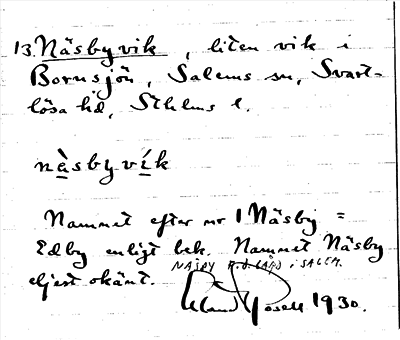 13. Näsbyvik, liten vik i
Bornsjön, Salems sn, Svart-
lösa hd, Sthlms l.
nàsbyvík
Namnet efter nr 1 Näsby =
Edby enligt bek. Namnet Näsby
NÄSBY I SALEM.
eljest okänt.
1930.